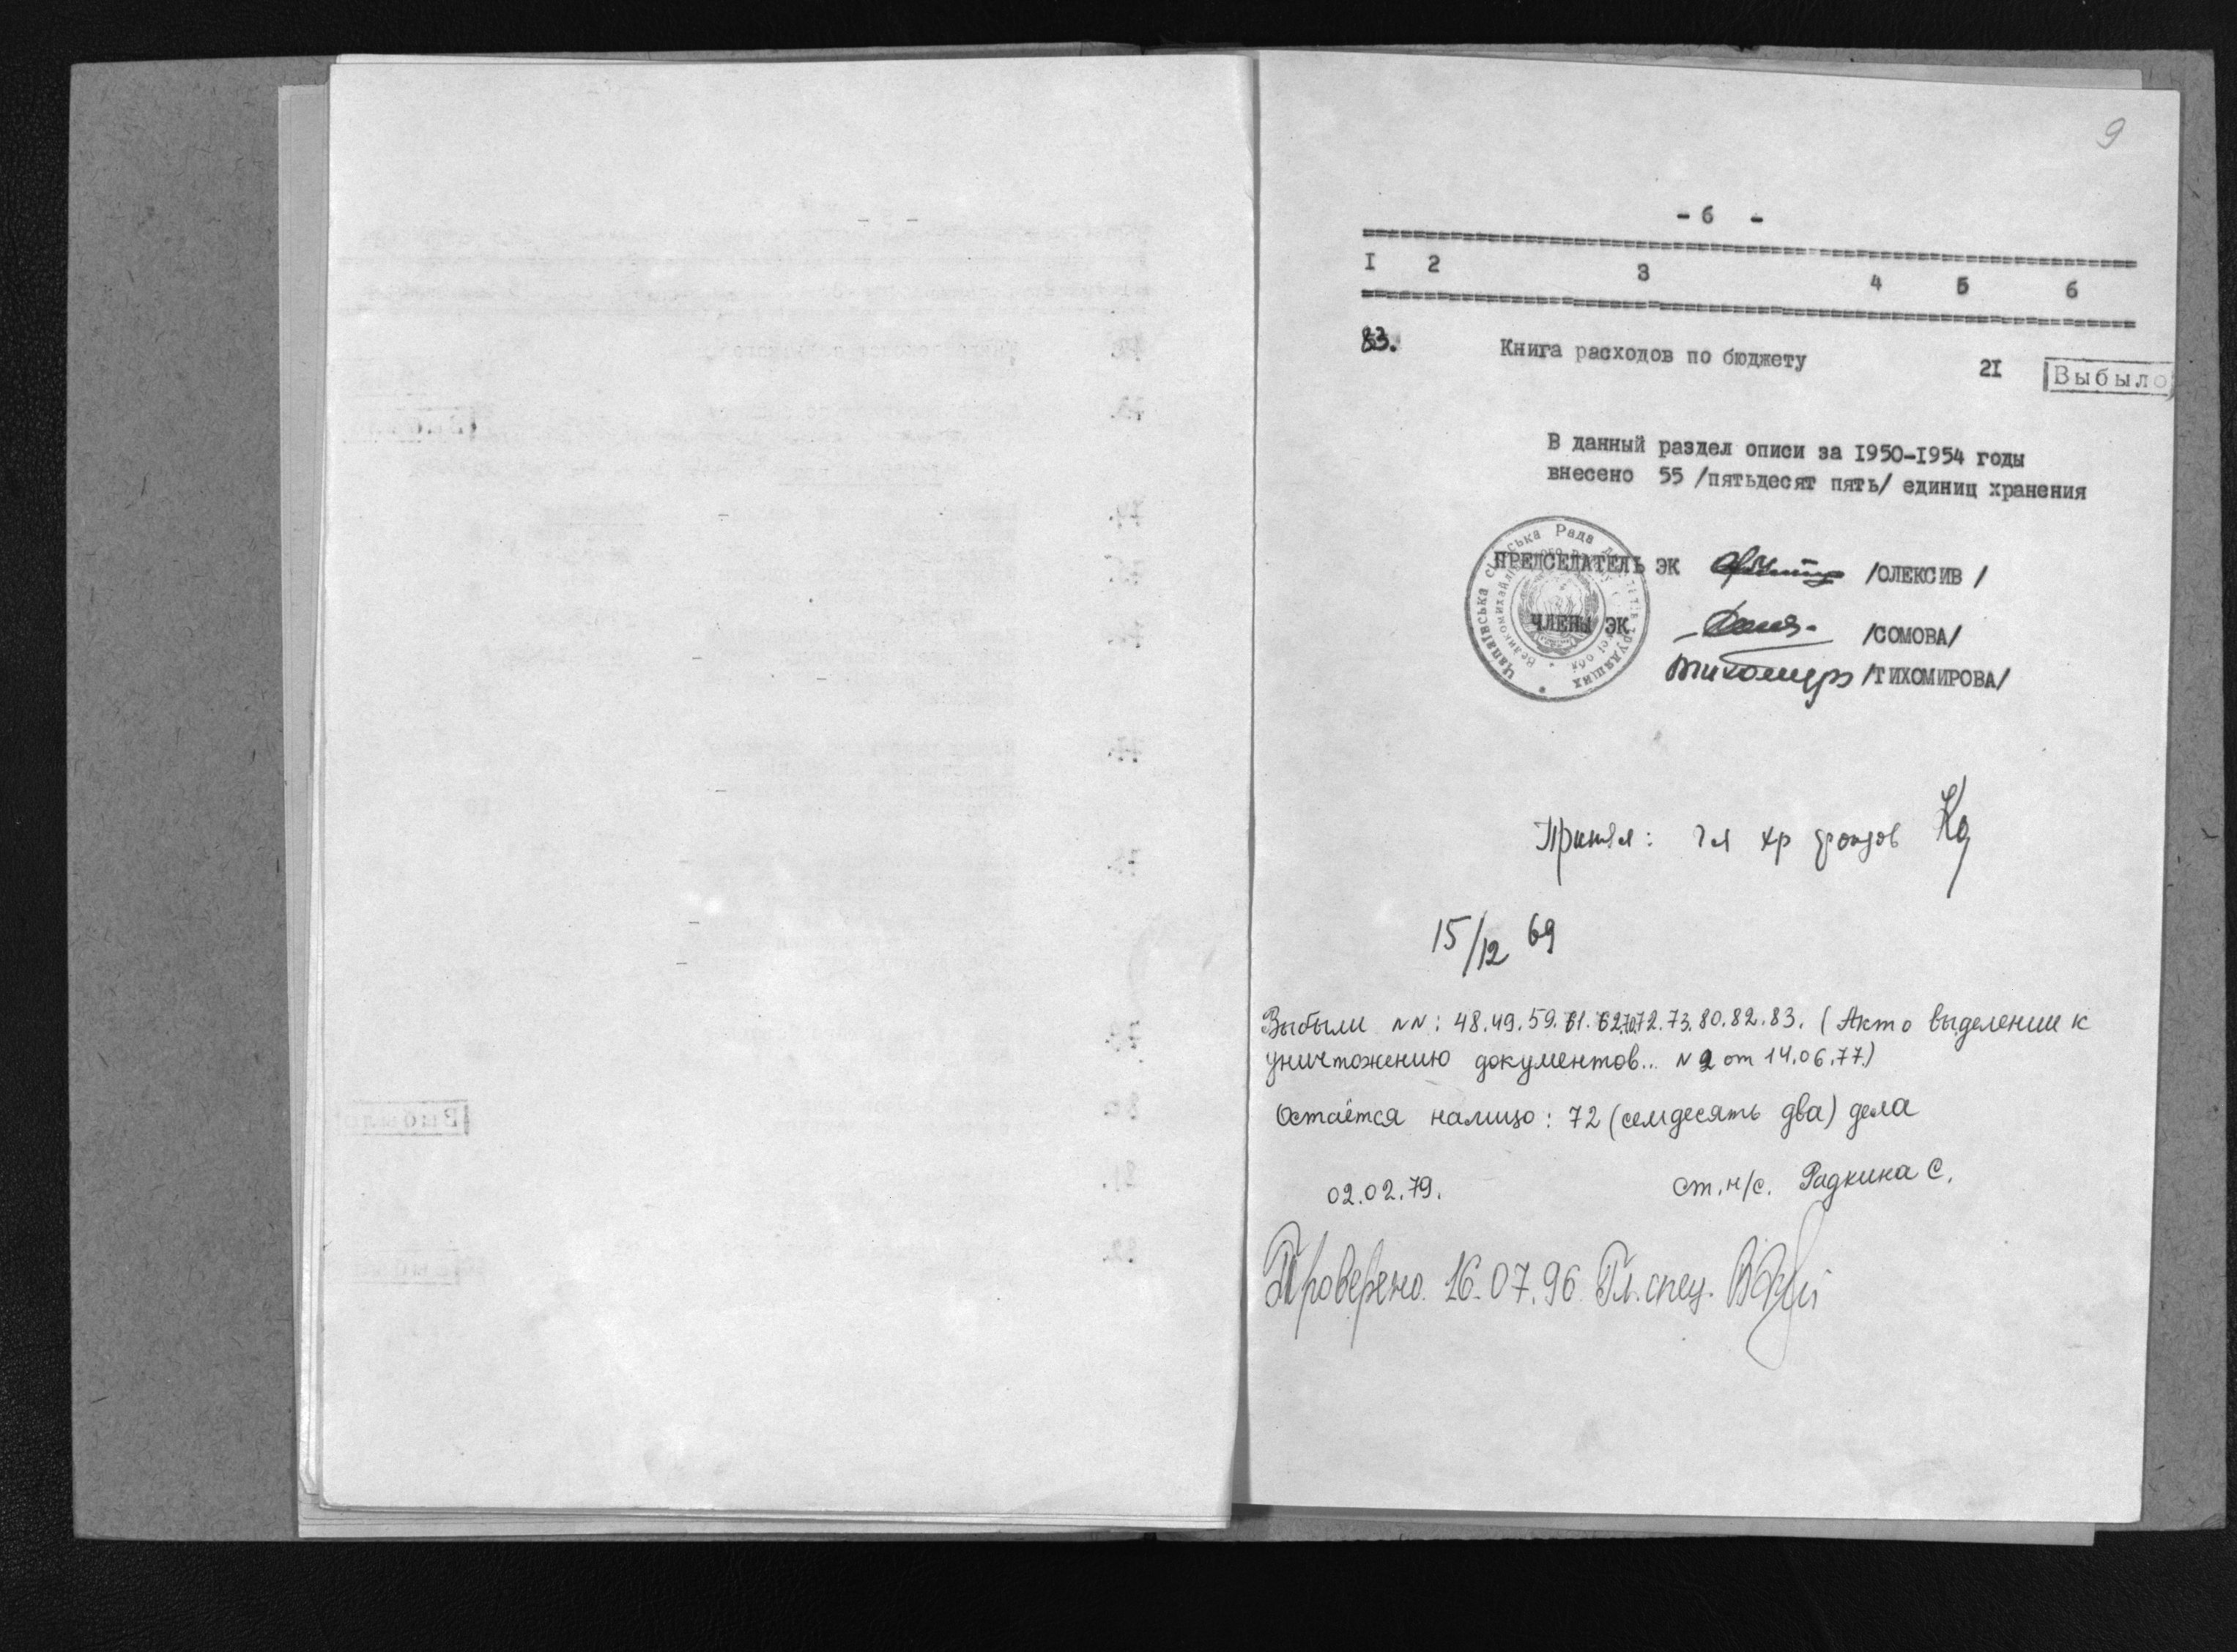 9
- 6 -
I 2 3 4 5 6
83. Книга расходов по бюджету 2I Выбыло
В данный раздел описи за I950-I954 годы
внесено 55 /пятьдесят пять/ единиц хранения
ПРЕДСЕДАТЕЛЬ ЭК /ОЛЕКСИВ /
ЧЛЕНЫ ЭК /СОМОВА/
Тихомиро /ТИХОМИРОВА/
Цапаївська сільська Рада трудящих
Принял: гл хр фондов
15/12 69
Выбыли NN: 48.49.59.61.62.70.72.73.80.82.83. (Акт о выделении к
уничтожению документов.. N 2 от 14.06.77.)
Остаётся налицо: 72 (семдесять два) дела
02.02.79. ст.н/с. Радкина С.
Проверено. 16.07.96 Гл. спец.